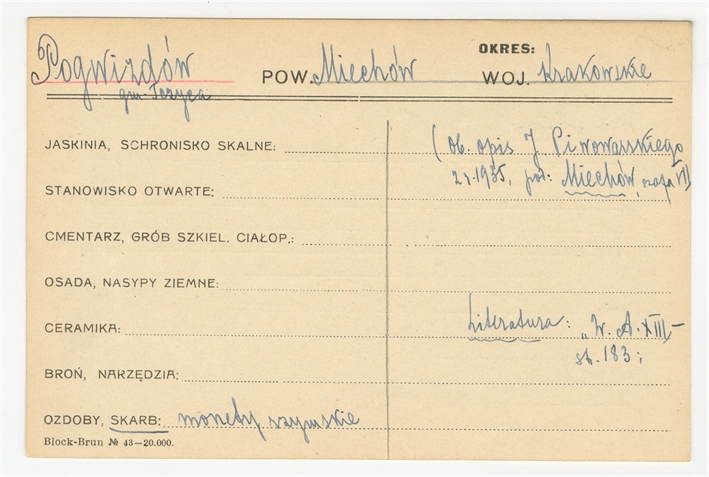 OKRES:
Pogwizdów POW. Miechów WOJ. Krakowskie
gm. Tczyca
JASKINIA, SCHRONISKO SKALNE: (ob. opis J Piwowarskiego
z r. 1935, pod: Miechów,
STANOWISKO OTWARTE:
CMENTARZ, GRÓB SZKIEL. CIAŁOP.:
OSADA, NASYPY ZIEMNE:
CERAMIKA: Literatura: „W. A. XIII –
st. 183;
BROŃ, NARZĘDZIA:
OZDOBY, SKARB: monety rzymskie
Block-Brun № 43—20.000.